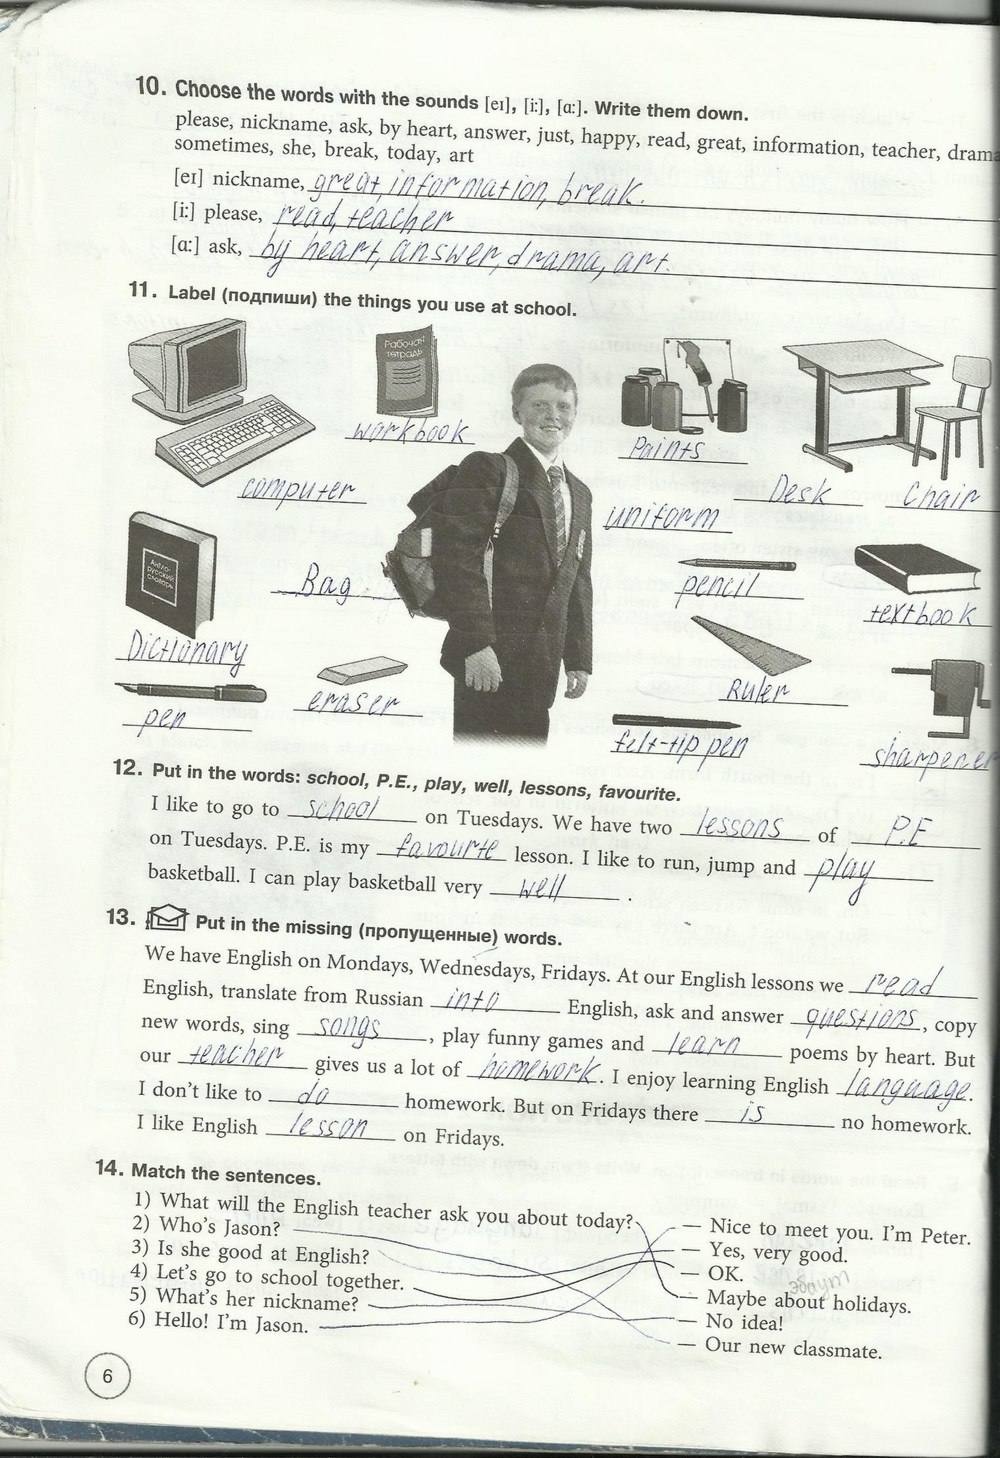 10. Choose the words with the sounds [eɪ], [i:], [ɑ:]. Write them down.
please, nickname, ask, by heart, answer, just, happy, read, great, information, teacher, drama
sometimes, she, break, today, art
[eɪ] nickname, great, information, break.
[i:] please, read, teacher
[ɑ:] ask, by heart, answer, drama, art.
11. Label (подпиши) the things you use at school.
Рабочая тетрадь
workbook
Paints
computer
Desk
Chair
uniform
Англо-русский словарь
Bag
pencil
textbook
Dictionary
eraser
Ruler
pen
felt-tip pen
sharpener
12. Put in the words: school, P.E., play, well, lessons, favourite.
I like to go to school on Tuesdays. We have two lessons of P.E
on Tuesdays. P.E. is my favourte lesson. I like to run, jump and play
basketball. I can play basketball very well .
13. Put in the missing (пропущенные) words.
We have English on Mondays, Wednesdays, Fridays. At our English lessons we read
English, translate from Russian into English, ask and answer questions, copy
new words, sing songs, play funny games and learn poems by heart. But
our teacher gives us a lot of homework. I enjoy learning English language.
I don't like to do homework. But on Fridays there is no homework.
I like English lesson on Fridays.
14. Match the sentences.
1) What will the English teacher ask you about today?
2) Who's Jason?
3) Is she good at English?
4) Let's go to school together.
5) What's her nickname?
6) Hello! I'm Jason.
— Nice to meet you. I'm Peter.
— Yes, very good.
— OK.
— Maybe about holidays.
— No idea!
— Our new classmate.
6